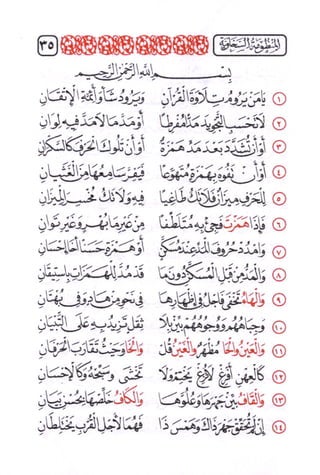 المنظومة السخاوية ٣٥
بسم الله الرحمن الرحيم
١ يَا مَنْ يَرُومُ تِلَاوَةَ الْقُرْآنِ وَيَرُودُ شَأْوَ أَئِمَّةِ الْإِتْقَانِ
٢ لَا تَحْسَبِ التَّجْوِيدَ مَدًّا مُفْرِطًا أَوْ مَدَّ مَا لَا مَدَّ فِيهِ لِوَانِ
٣ أَوْ أَنْ تُشَدِّدَ بَعْدَ مَدٍّ هَمْزَةً أَوْ أَنْ تَلُوكَ الْحَرْفَ كَالسَّكْرَانِ
٤ أَوْ أَنْ تَفُوهَ بِهَمْزَةٍ مُتَهَوِّعًا فَيَفِرَّ سَامِعُهَا مِنَ الْغَثَيَانِ
٥ لِلْحَرْفِ مِيزَانٌ فَلَا تَكُ طَاغِيًا فِيهِ وَلَا تَكُ مُخْسِرَ الْمِيزَانِ
٦ فَإِذَا هَمَزْتَ فَجِئْ بِهِ مُتَلَطِّفًا مِنْ غَيْرِ مَا بُهْرٍ وَغَيْرِ تَوَانِ
٧ وَامْدُدْ حُرُوفَ الْمَدِّ عِنْدَ مُسَكَّنٍ أَوْ هَمْزَةٍ حَسَنًا أَخَا إِحْسَانِ
٨ وَالْمَدُّ مِنْ قَبْلِ الْمُسَكَّنِ دُونَ مَا قَدْ مُدَّ لِلْهَمَزَاتِ بِاسْتِيقَانِ
٩ وَالْهَاءُ تَخْفَى فَاجْلُ فِي إِظْهَارِهَا فِي نَحْوِ مِنْ هَادٍ وَفِي بُهْتَانِ
١٠ وَجِبَاهُهُمْ وَوُجُوهُهُمْ بَيِّنْ بِلَا ثِقَلٍ تَزِيدُ بِهِ عَلَى التِّبْيَانِ
١١ وَالْعَيْنُ وَالْحَا مُظْهَرٌ وَالْغَيْنُ قُلْ وَالْخَا وَحَيْثُ تَقَارَبَ الْحَرْفَانِ
١٢ كَالْعِهْنِ أَفْرِغْ لَا تُزِغْ يَخْتِمْ وَلَا تَخْشَى وَسَبِّحْهُ وَكَالْإِحْسَانِ
١٣ وَالْقَافَ بَيِّنْ جَهْرَهَا وَعُلُوَّهَا وَالْكَافَ خَلِّصْهَا بِحُسْنِ بَيَانِ
١٤ إِنْ لَمْ تُحَقِّقْ جَهْرَ ذَاكَ وَهَمْسَ ذَا فَهُمَا لِأَجْلِ الْقُرْبِ يَخْتَلِطَانِ